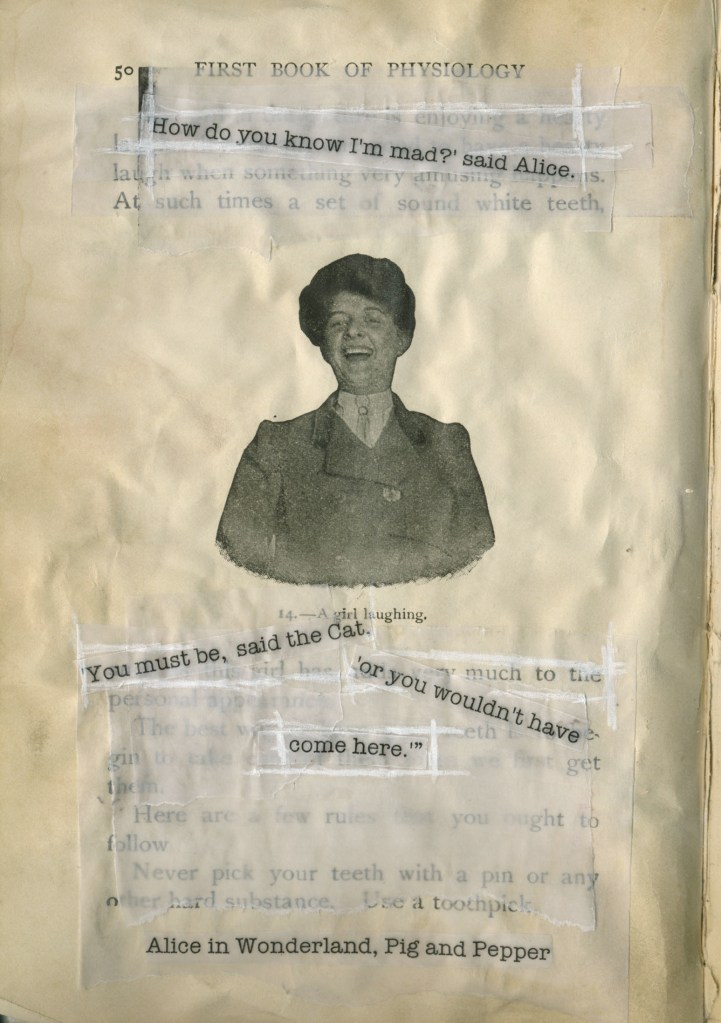 50 FIRST BOOK OF PHYSIOLOGY
is enjoying a hearty
'How do you know I'm mad?' said Alice.
laugh when something very amusing happens.
At such times a set of sound white teeth,
14.—A girl laughing.
'You must be, said the Cat.
'or you wouldn't have
this girl has very much to the
personal appearance.
The best teeth
come here.'”
gin to take we first get
them.
Here are a few rules that you ought to
follow
Never pick your teeth with a pin or any
other hard substance. Use a toothpick.
Alice in Wonderland, Pig and Pepper